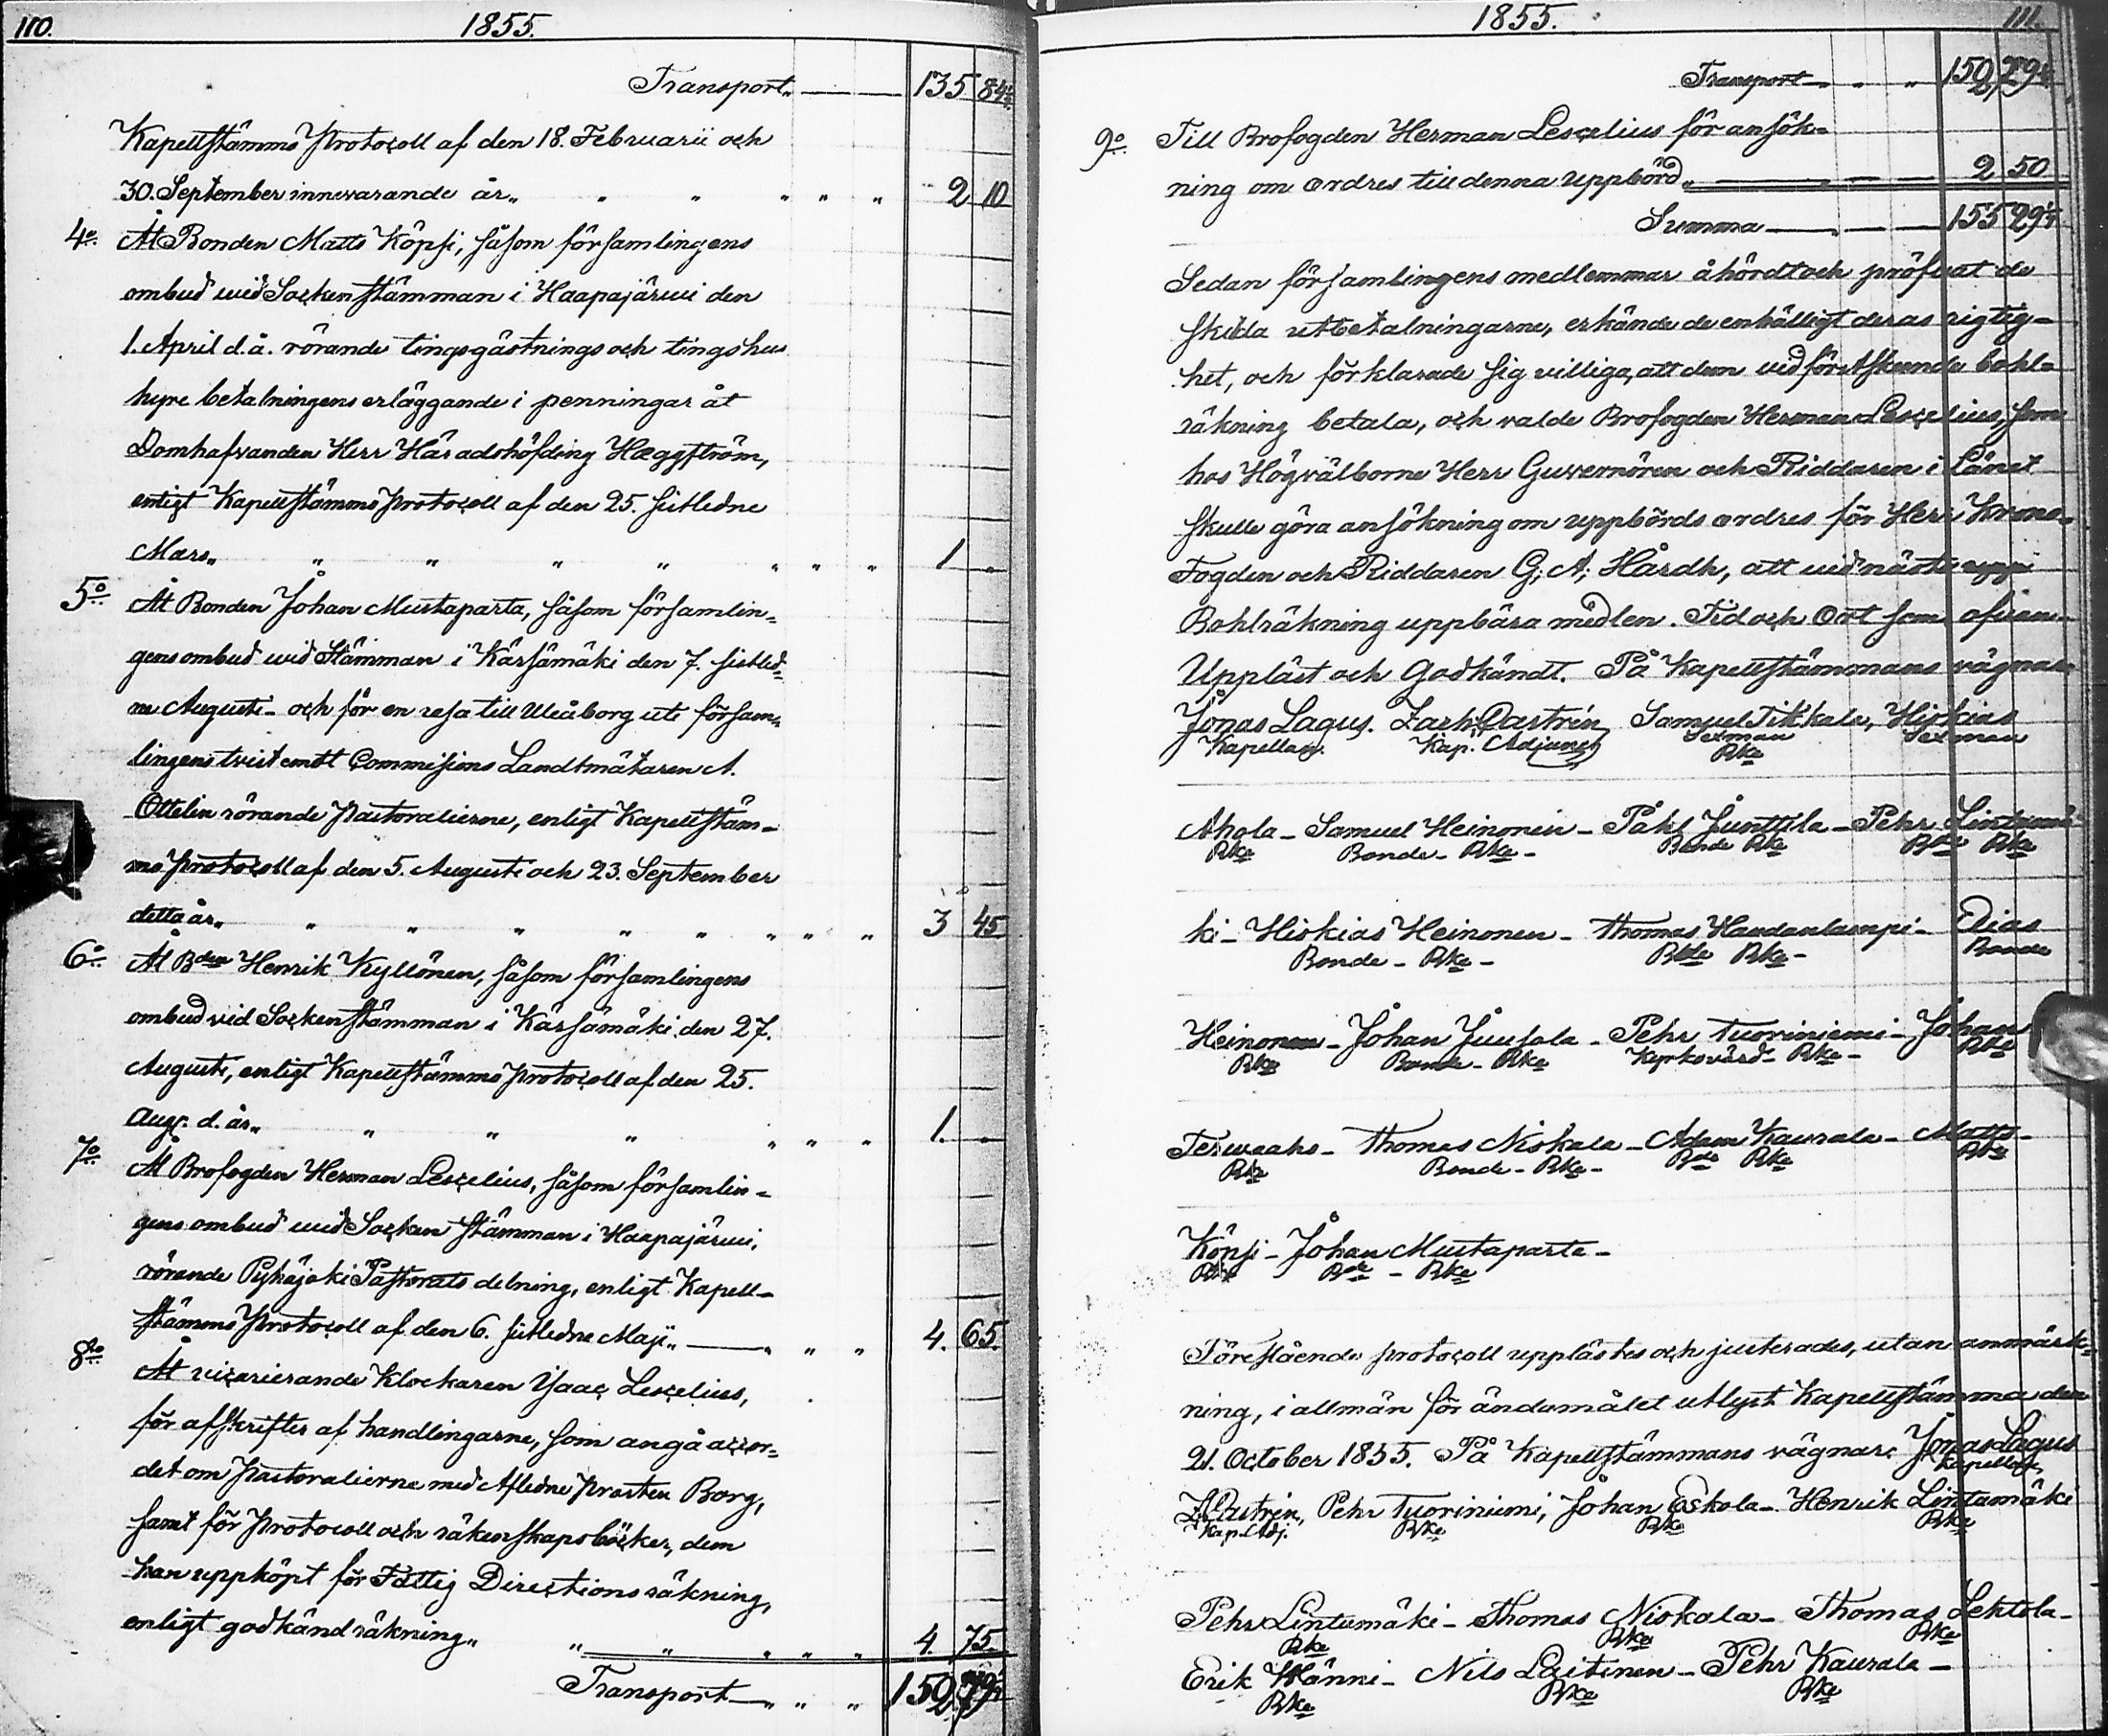 110. 1855.
Transport„ 135 84½
Kapellstämms Protocoll af den 18. Februarii och
30. September innevarande år„ „ „ „ „ „ 2 10
4o Åt Bonden Matts Köpsi, såsom församlingens
ombud wid Sockenstämman i Haapajärwi den
1. April d.å. rörande tingsgästnings och tingshus
hyre betalningens erläggande i penningar åt
Domhafvanden Herr Häradshöfding Hæggström,
enligt Kapellstämms protocoll af den 25. sistledne
Mars„ „ „ „ „ „ „ „ 1 „
5o Åt Bonden Johan Mustaparta, såsom församlin=
gens ombud wid Stämman i Kärsämäki den 7. sistled=
ne Augusti – och för en resa till Uleåborg uti försam=
lingens tvist emot Commissions Landtmätaren A.
Ottelin rörande Pastoralierne, enligt Kapellstäm=
ms protocoll af den 5. Augusti och 23. September
detta år„ „ „ „ „ „ „ „ „ 3 45
6o Åt Bden Henrik Kyllönen, såsom församlingens
ombud vid Sockenstämman i Kärsämäki den 27.
Augusti, enligt Kapellstämms protocoll af den 25.
Aug. d. år„ „ „ „ „ „ „ 1. „
7o Åt Brofogden Herman Lescelius, såsom församlin=
gens ombud wid Socken stämman i Haapajärwi,
rörande Pyhäjoki Pastorats delning, enligt Kapell=
stämms Protocoll af den 6. sistledne Maji„ „ „ „ 4. 65.
8o Åt vicarierande Klockaren Isaac Lescelius,
för afskrifter af handlingarne, som angå accor=
det om Pastoralierne med Afledne Prosten Borg,
samt för Protocoll och räkenskapsböcker, dem
han uppköpt för Fattig Directions räkning,
enligt godkänd räkning„ „ „ „ „ „ 4. 75.
Transport „ „ „ 152, 79½
1855. 111.
Transport „ „ „ 152, 79½
9o Till Brofogden Herman Lescelius för ansök=
ning om ordres till denna uppbörd„ 2 50
Summa 155 29½
Sedan församlingens medlemmar åhördt och pröfvat de
skilda utbetalningarne, erkände de enhälligt deras rigtig=
het, och förklarade sig villiga, att dem vid förstskeende bohl=
räkning betala, och valde Brofogden Herman Lescelius, som
hos Högvälborne Herr Guvernören och Riddaren i Länet
skulle göra ansökning om uppbörds ordres för Herr Krono=
Fogden och Riddaren G; A; Hårdh, att vid nästa
Bohlräkning uppbära medlen. Tid och Ort som ofvan
Uppläst och Godkändt. På Kapellstämmans vägnar
Jonas Lagus. Zach; Castrén Samuel Tikkala, Hiskias
Kapellan. Kap. Adjunct Sexman Sexman
Rke
Ahola – Samuel Heinonen – Påhl Junttila – Pehr Lintumä
Rke Bonde – Rke – Bonde Rke Bde Rke
ki – Hiskias Heinonen – Thomas Haudanlampi – Elias
Bonde – Rke – Bde Rke – Bonde
Heinonen – Johan Juusola – Pehr Tuoriniemi – Johan
Rke Bonde – Rke Kyrkovärd – Rke – Rke
Terwaaho – Thomas Niskala – Adam Kaurala – Matts –
Rke Bonde – Rke – Bde Rke Rke
Köpsi – Johan Mustaparta –
Rke Bde – Rke
Förestående protocoll upplästes och justerades, utan anmärk=
ning, i allmän för ändamålet utlyst Kapellstämma den
21. October 1855. På Kapellstämmans vägnar: Jonas Lagus
Kapellan,
Z. Castrén, Pehr Tuoriniemi, Johan Eskola – Henrik Lintumäki
Kap. Adj. Rke Rke Rke
Pehr Lintumäki – Thomas Niskala – Thomas Lehtola –
Rke Rke Rke
Erik Hänni – Nils Laitinen – Pehr Kaurala –
Rke Rke Rke